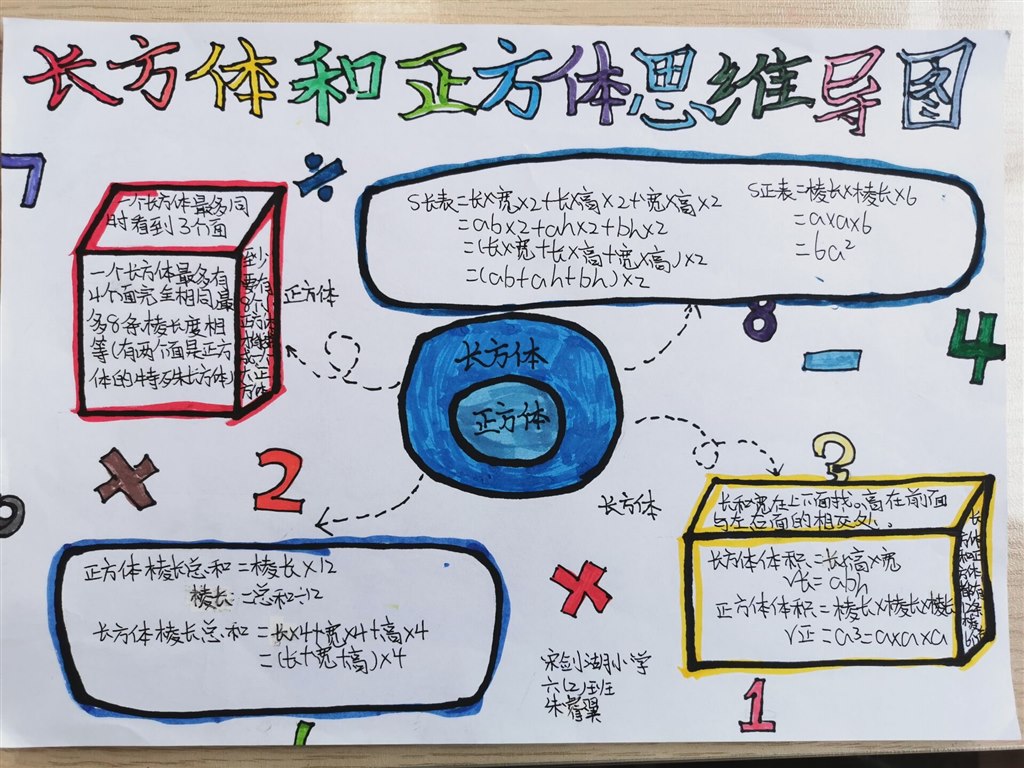 长方体和正方体思维导图
7
÷
一个长方体最多同
时看到3个面
一个长方体最多有
4个面完全相同,最
多8条棱长度相
等(有两个面是正方
体的特殊长方体)
正方体
S长表=长×宽×2+长×高×2+宽×高×2
=ab×2+ah×2+bh×2
=(长×宽+长×高+宽×高)×2
=(ab+ah+bh)×2
S正表=棱长×棱长×6
=a×a×6
=6a²
8
4
长方体
正方体
×
2
长方体
长和宽在上下面找。高在前面
与左右面的相交处。
长方体体积=长×高×宽
V长=abh
正方体体积=棱长×棱长×棱长
V正=a3=a×a×a
正方体棱长总和=棱长×12
棱长=总和÷12
长方体棱长总和=长×4+宽×4+高×4
=(长+宽+高)×4
×
宋剑湖小学
六(2)班
1